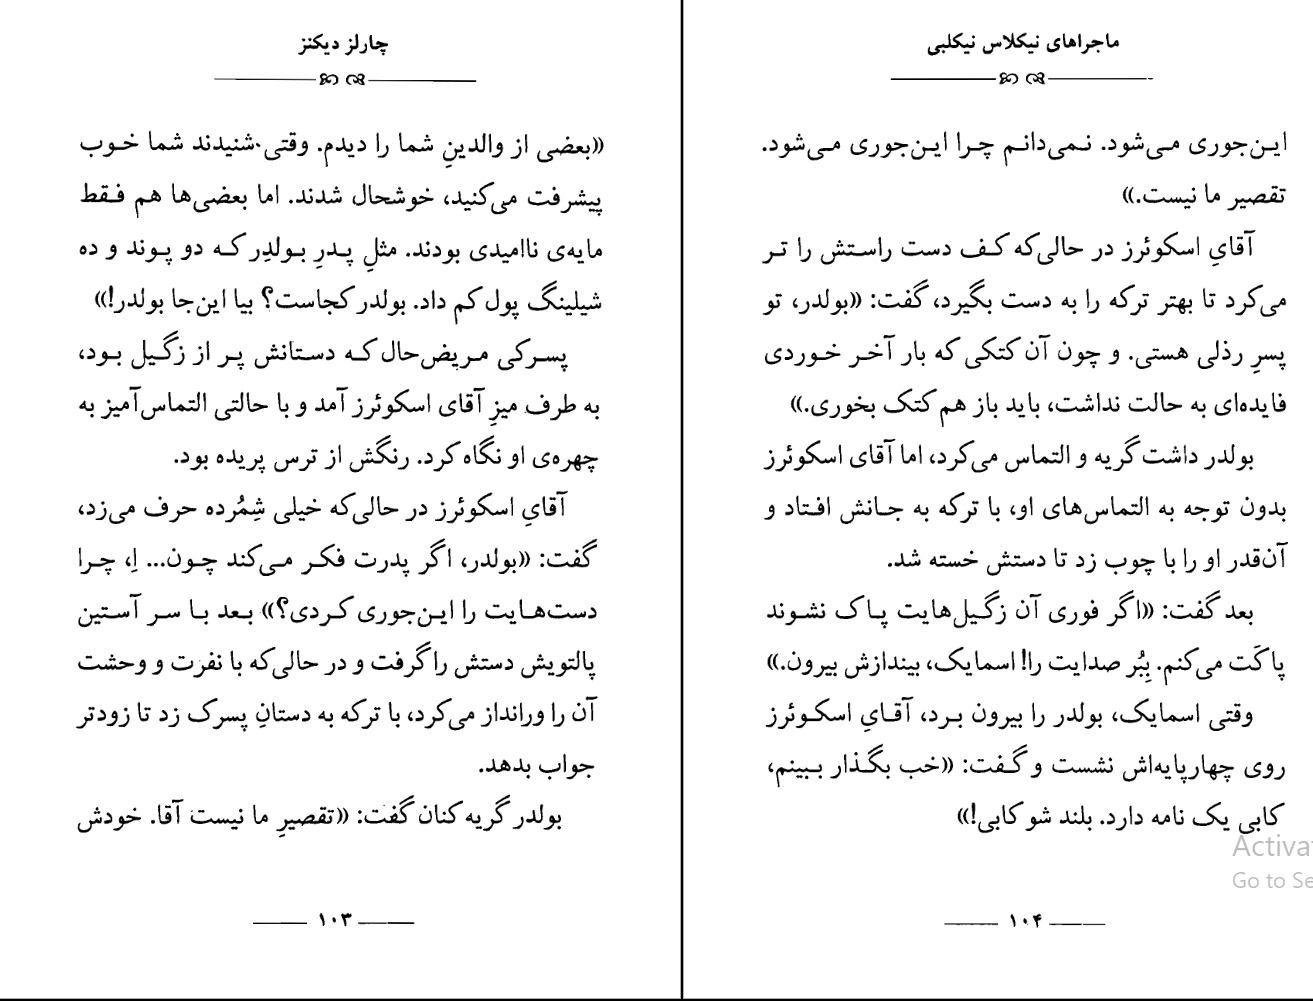 چارلز دیکنز
«بعضی از والدینِ شما را دیدم. وقتی شنیدند شما خوب
پیشرفت می‌کنید، خوشحال شدند. اما بعضی‌ها هم فقط
مایه‌ی ناامیدی بودند. مثلِ پدرِ بولدِر که دو پوند و ده
شیلینگ پول کم داد. بولدر کجاست؟ بیا این‌جا بولدر!»
پسرکی مریض‌حال که دستانش پر از زگیل بود،
به طرف میزِ آقای اسکوئرز آمد و با حالتی التماس‌آمیز به
چهره‌ی او نگاه کرد. رنگش از ترس پریده بود.
آقایِ اسکوئرز در حالی‌که خیلی شِمُرده حرف می‌زد،
گفت: «بولدر، اگر پدرت فکر می‌کند چون... اِ، چرا
دست‌هایت را این‌جوری کردی؟» بعد با سر آستین
پالتویش دستش را گرفت و در حالی‌که با نفرت و وحشت
آن را ورانداز می‌کرد، با ترکه به دستانِ پسرک زد تا زودتر
جواب بدهد.
بولدر گریه‌کنان گفت: «تقصیرِ ما نیست آقا. خودش
۱۰۳
ماجراهای نیکلاس نیکلبی
این‌جوری می‌شود. نمی‌دانم چرا این‌جوری می‌شود.
تقصیر ما نیست.»
آقایِ اسکوئرز در حالی‌که کف دست راستش را تر
می‌کرد تا بهتر ترکه را به دست بگیرد، گفت: «بولدر، تو
پسرِ رذلی هستی. و چون آن کتکی که بار آخر خوردی
فایده‌ای به حالت نداشت، باید باز هم کتک بخوری.»
بولدر داشت گریه و التماس می‌کرد، اما آقای اسکوئرز
بدون توجه به التماس‌های او، با ترکه به جانش افتاد و
آن‌قدر او را با چوب زد تا دستش خسته شد.
بعد گفت: «اگر فوری آن زگیل‌هایت پاک نشوند
پاکَت می‌کنم. بِبُر صدایت را! اسمایک، بیندازش بیرون.»
وقتی اسمایک، بولدر را بیرون برد، آقایِ اسکوئرز
روی چهارپایه‌اش نشست و گفت: «خب بگذار ببینم،
کابی یک نامه دارد. بلند شو کابی!»
۱۰۴
Activa
Go to Se